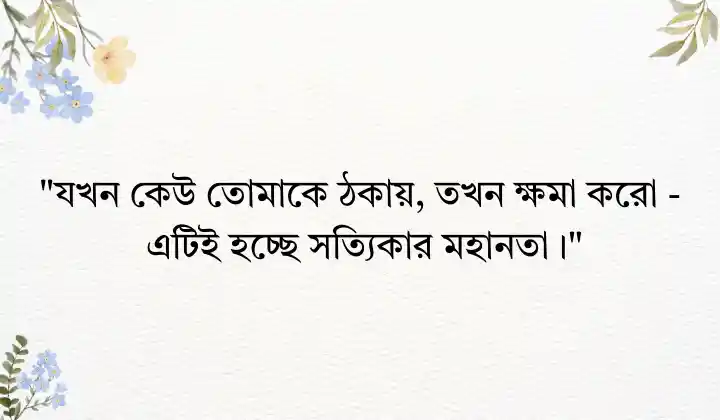 "যখন কেউ তোমাকে ঠকায়, তখন ক্ষমা করো -
এটিই হচ্ছে সত্যিকার মহানতা।"